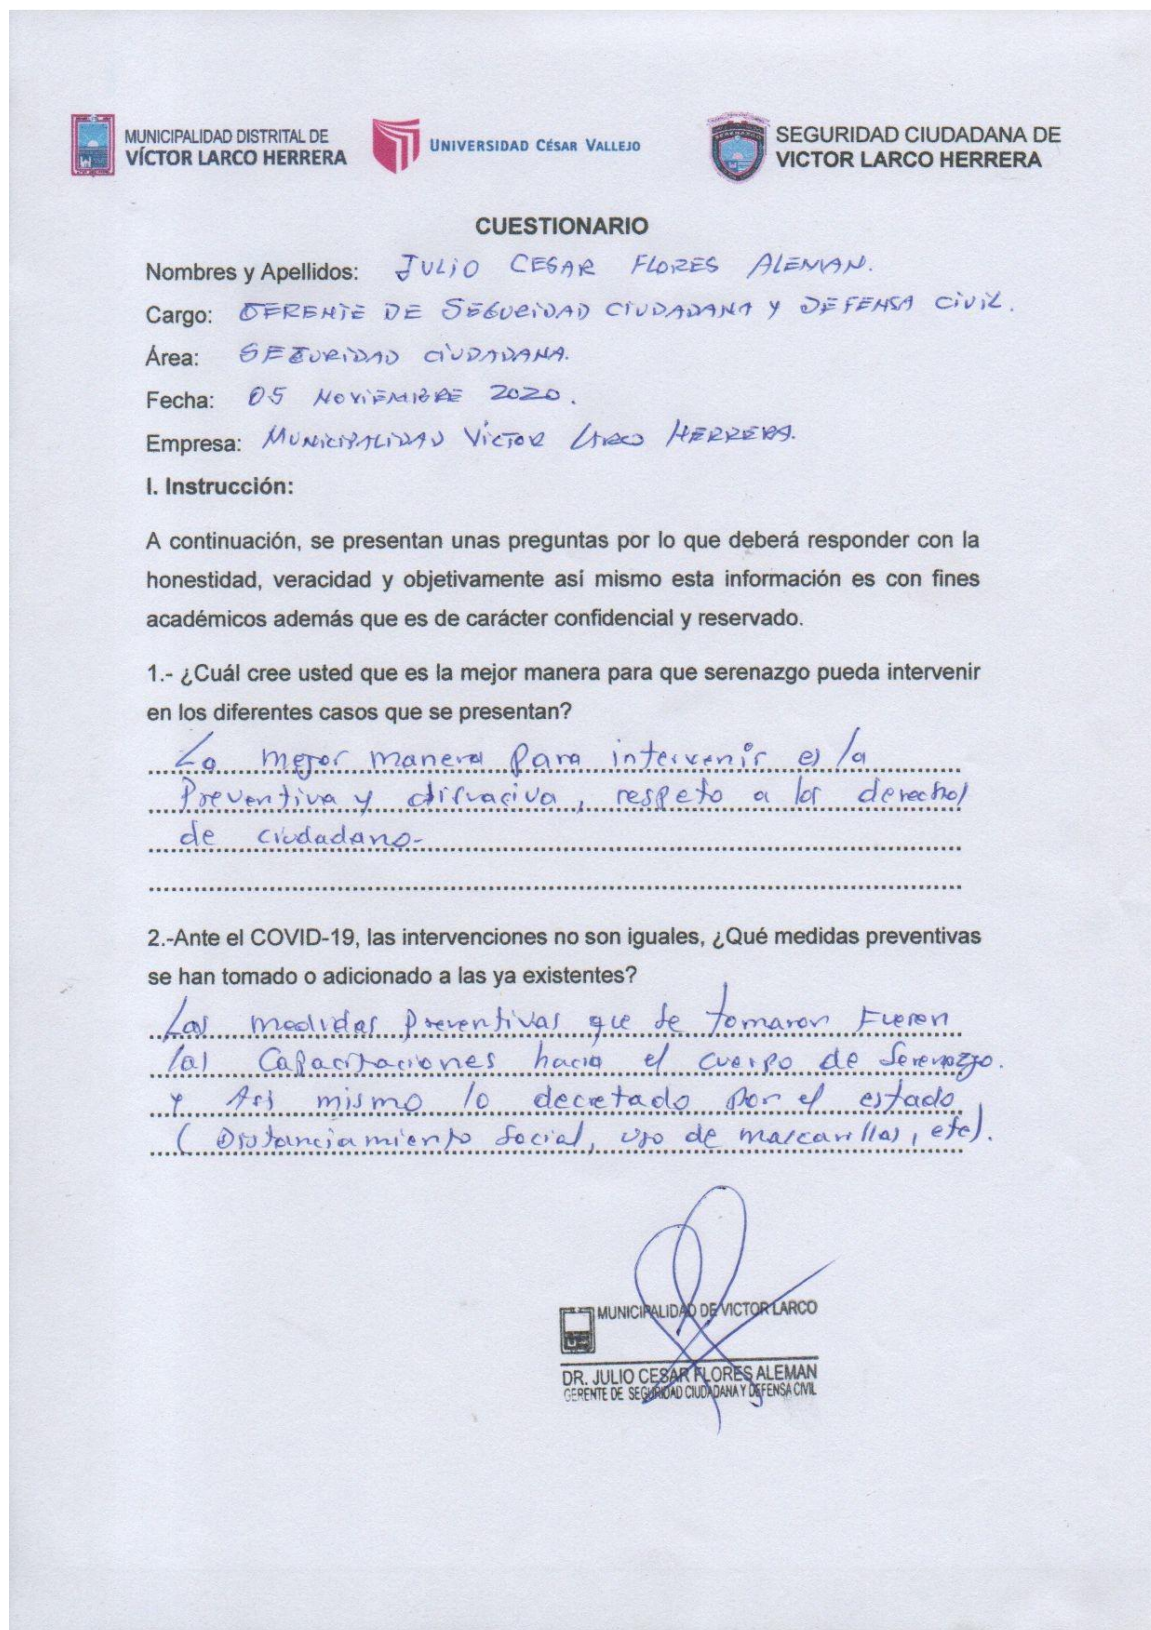 MUNICIPALIDAD DISTRITAL DE
VÍCTOR LARCO HERRERA
UNIVERSIDAD CÉSAR VALLEJO
SEGURIDAD CIUDADANA DE
VICTOR LARCO HERRERA
CUESTIONARIO
Nombres y Apellidos: JULIO CESAR FLORES ALEMAN.
Cargo: GERENTE DE SEGURIDAD CIUDADANA Y DEFENSA CIVIL.
Área: SEGURIDAD CIUDADANA.
Fecha: 05 NOVIEMBRE 2020.
Empresa: MUNICIPALIDAD VÍCTOR LARCO HERRERA.
I. Instrucción:
A continuación, se presentan unas preguntas por lo que deberá responder con la
honestidad, veracidad y objetivamente así mismo esta información es con fines
académicos además que es de carácter confidencial y reservado.
1.- ¿Cuál cree usted que es la mejor manera para que serenazgo pueda intervenir
en los diferentes casos que se presentan?
La mejor manera para intervenir es la
Preventiva y disuaciva, respeto a los derechos
de ciudadano.
2.-Ante el COVID-19, las intervenciones no son iguales, ¿Qué medidas preventivas
se han tomado o adicionado a las ya existentes?
Las medidas preventivas que se tomaron Fueron
las Capacitaciones hacia el cuerpo de Serenazgo.
y Asi mismo lo decretado por el estado
(Distanciamiento Social, uso de mascarillas, etc).
MUNICIPALIDAD DE VICTOR LARCO
DR. JULIO CESAR FLORES ALEMAN
GERENTE DE SEGURIDAD CIUDADANA Y DEFENSA CIVIL